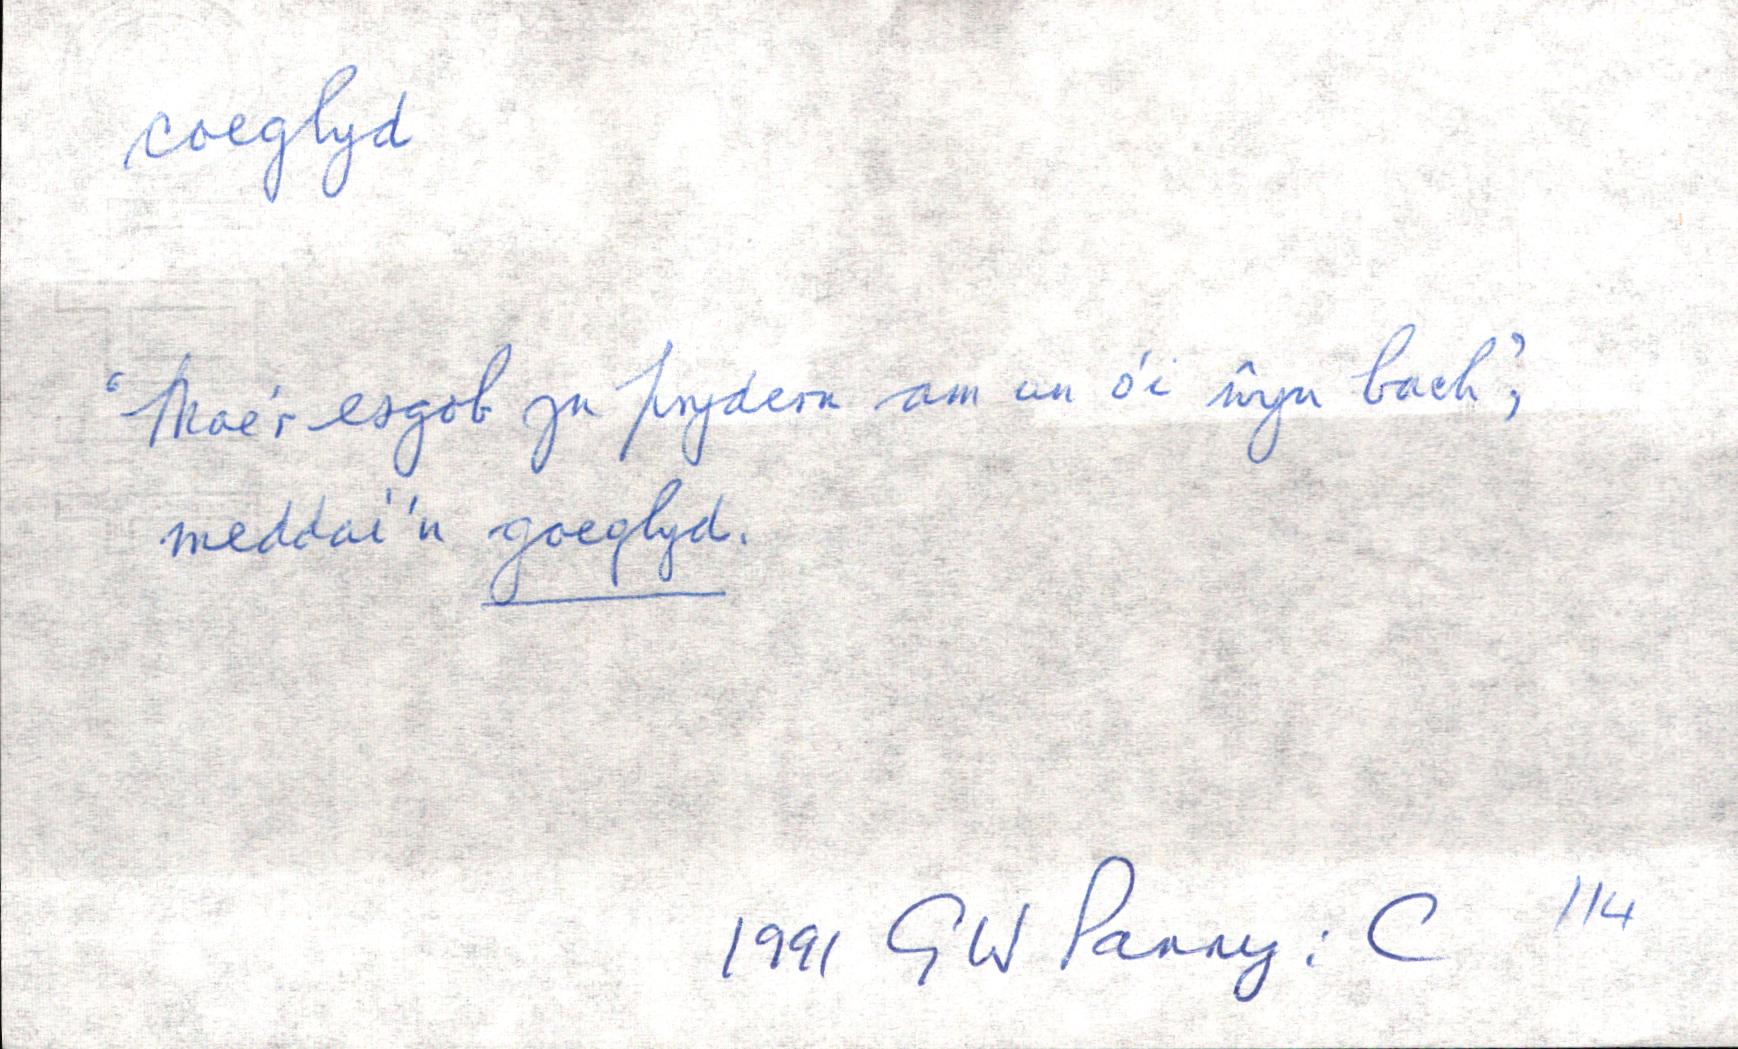 coeglyd
‘Mae'r esgob yn prydern am un o'i ŵyn bach’,
meddai'n goeglyd.
1991 GW Parry: C 114